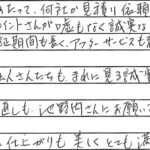 あたって、何社か見積り依頼
イントさんが嘘もなく誠実な
証期間も長く、アフターサービスも
人さんたちも、まれに見る誠実
直しも、池野内さんにお願い
仕上がりも美しくとても満